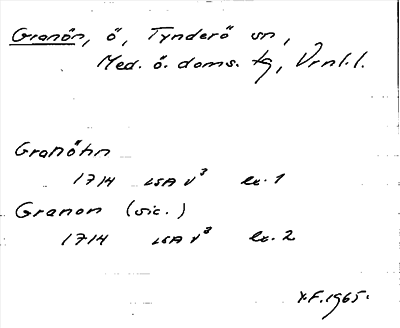 Granön, ö, Tynderö sn,
Med. ö. doms. tg, Vrnl.l.
Granöhn
1714 LSA V³ ex. 1
Granon (sic.)
1714 LSA V³ ex. 2
X.F. 1965.